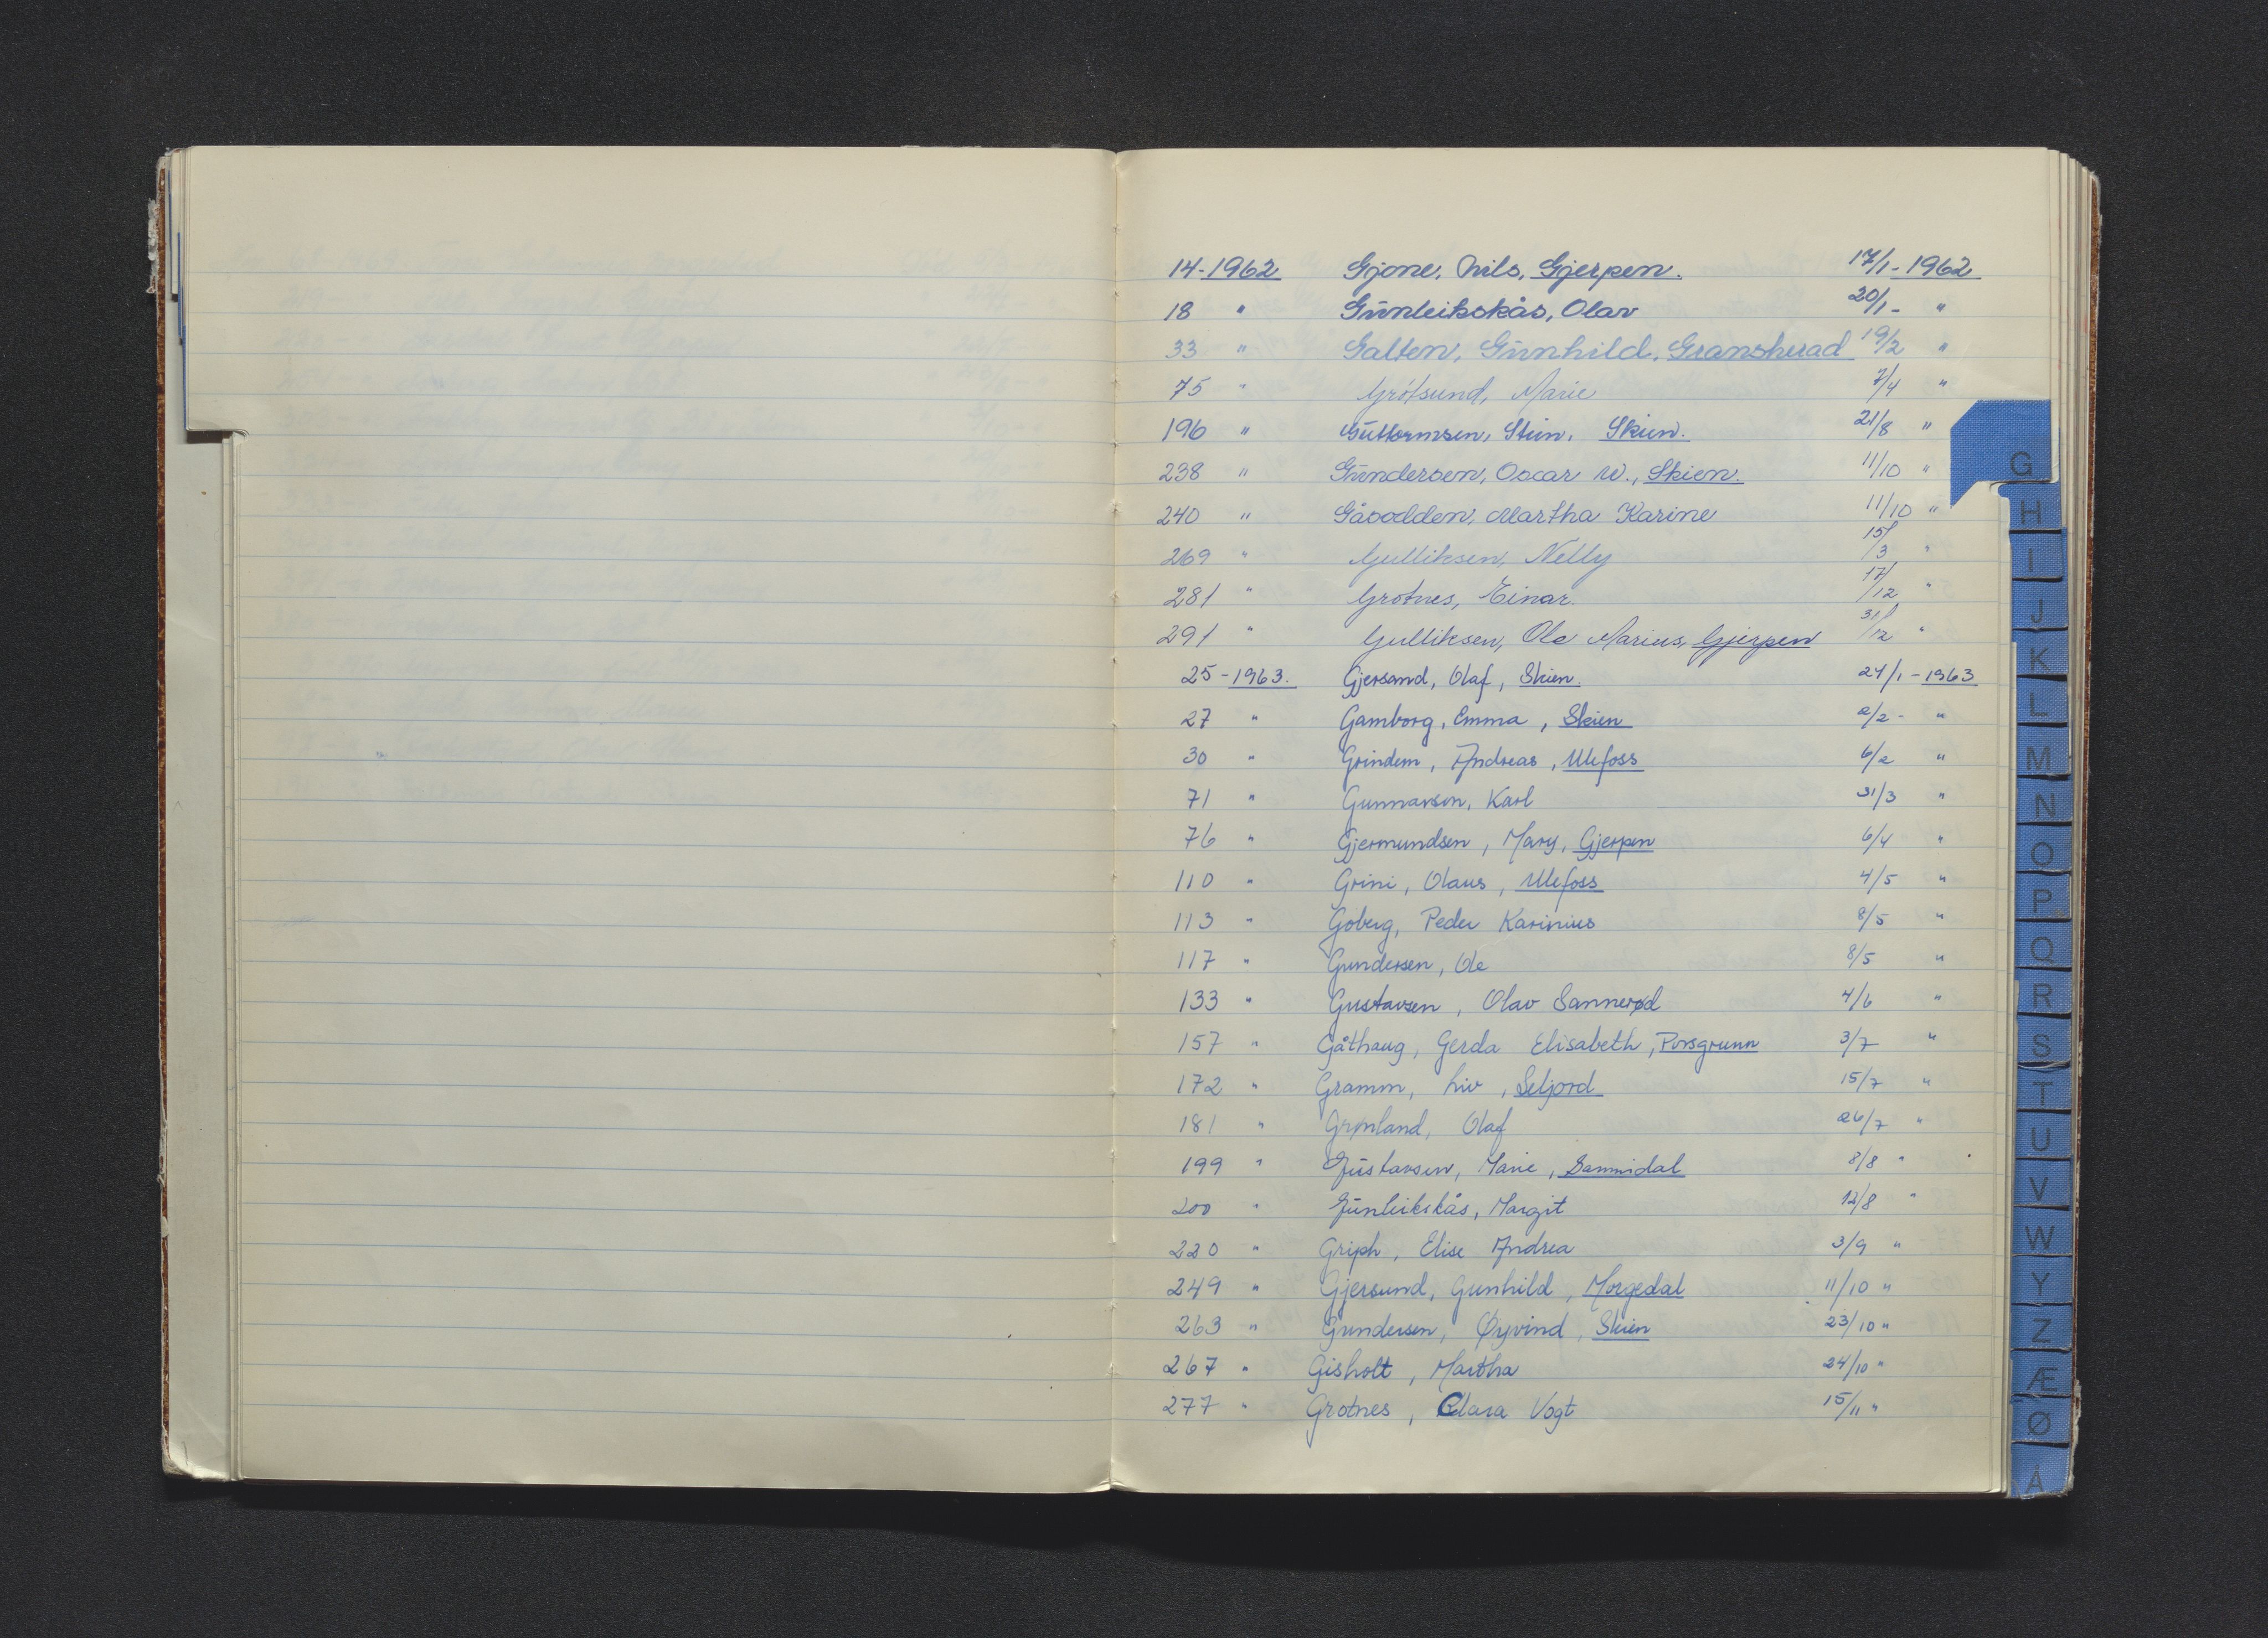 14-1962 Gjone, Nils, Gjerpen. 17/1-1962
18 " Gunleikskås, Olav 20/1- "
33 " Galten, Gunhild, Gransherad 19/2 "
75 " Grótsund, Marie 7/4 "
196 " Guttormsen, Stein, Skien. 21/8 "
238 " Gundersen, Oscar W., Skien. 11/10 "
240 " Gåsodden, Martha Karine 11/10 "
269 " Gulliksen, Nelly 15/3 "
281 " Grotnes, Einar. 17/12 "
291 " Gulliksen, Ole Marius, Gjerpen 31/12 "
25-1963. Gjersand, Olaf, Skien. 24/1-1963
27 " Gamborg, Emma, Skien 2/2- "
30 " Grindem, Andreas, Ulefoss 6/2 "
71 " Gunnarson, Karl 31/3 "
76 " Gjermundsen, Mary, Gjerpen 6/4 "
110 " Grini, Olaus, Ulefoss 4/5 "
113 " Goberg, Peder Karinius 8/5 "
117 " Gundersen, Ole 8/5 "
133 " Gustavsen, Olav Sannerød 4/6 "
157 " Gåthaug, Gerda Elisabeth, Porsgrunn 3/7 "
172 " Gramm, Liv, Seljord 15/7 "
181 " Grønland, Olaf 26/7 "
199 " Gustavsen, Marie, Sannidal 8/8 "
200 " Gunleikskås, Margit 12/8 "
220 " Griph, Elise Andrea 3/9 "
249 " Gjersund, Gunhild, Morgedal 11/10 "
263 " Gundersen, Øyvind, Skien 23/10 "
267 " Gisholt, Martha 24/10 "
277 " Grotnes, Clara Vogt 15/11 "
G
H
I
J
K
L
M
N
O
P
Q
R
S
T
U
V
W
Y
Z
Æ
Ø
Å